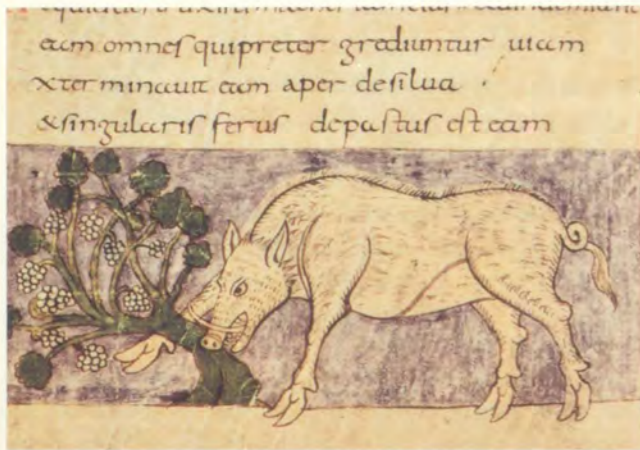 eam omnes qui preter grediuntur uiam
xterminauit eam aper desilua
&singularis ferus depastus est eam